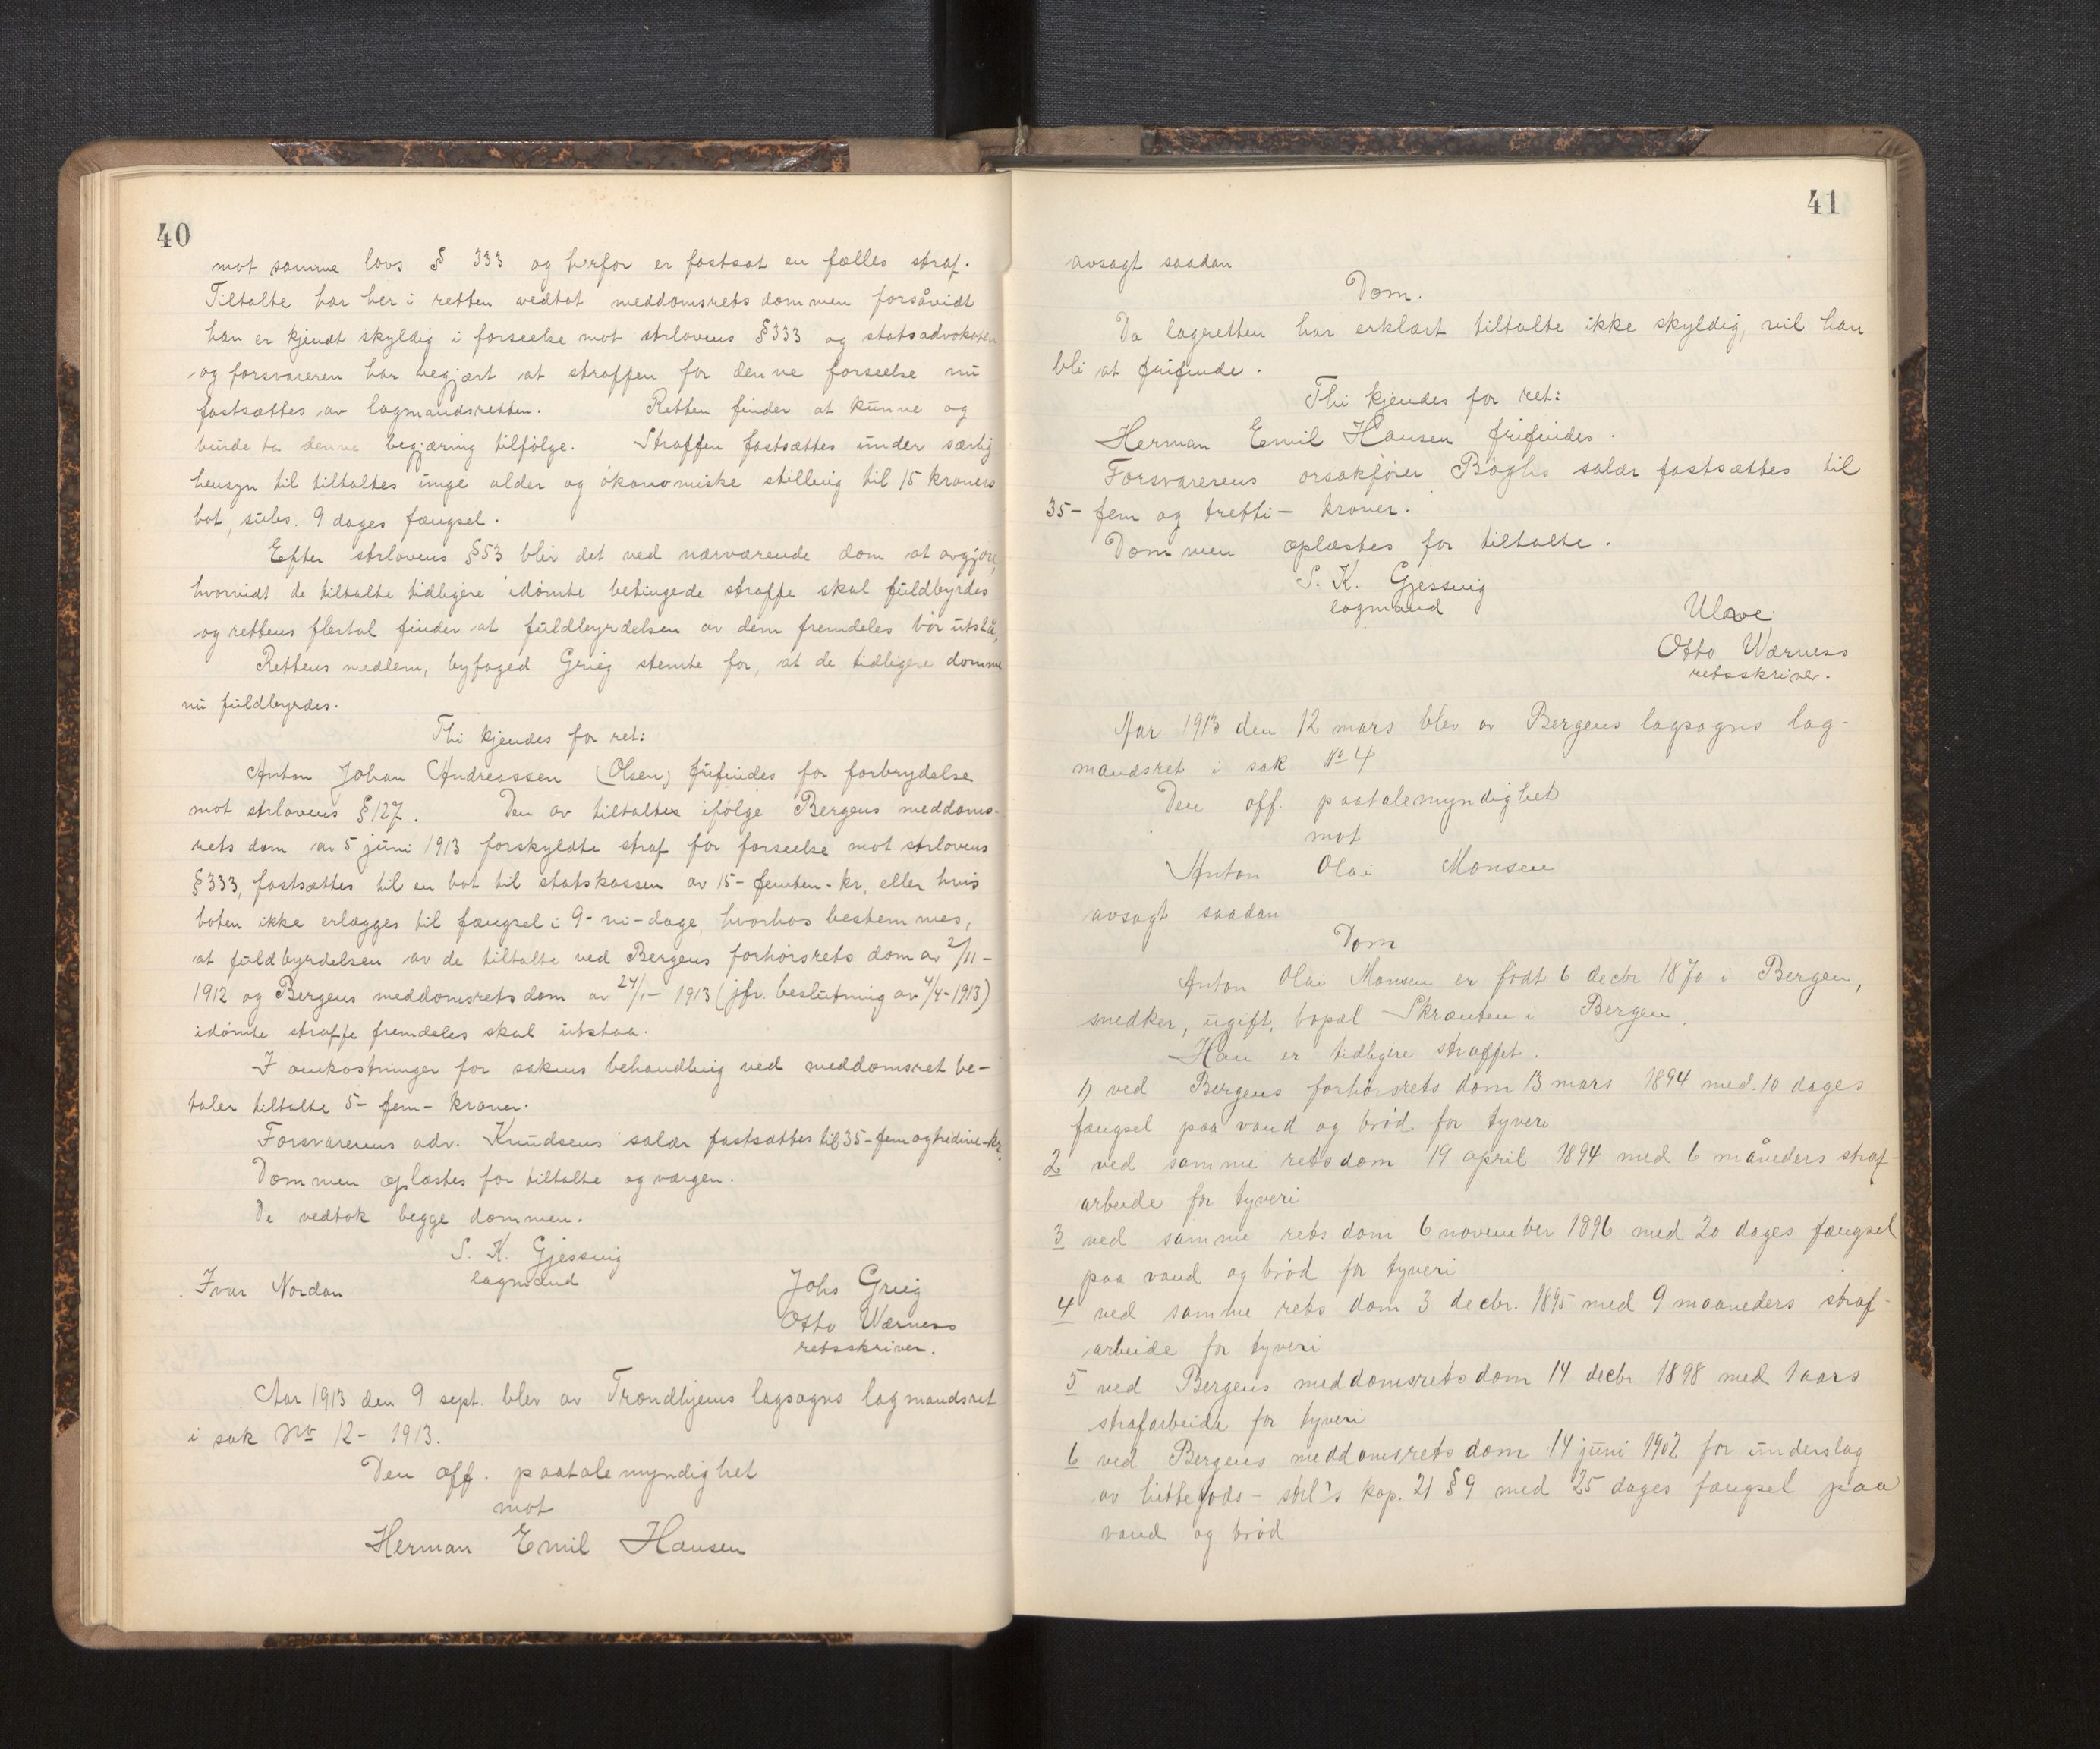 40
mot samme lovs § 333 og herfor er fastsat en fælles straf.
Tiltalte har her i retten vedtat meddomsretsdommen forsåvidt
han er kjendt skyldig i forseelse mot strlovens §333 og statsadvokaten
og forsvareren har begjært at straffen for denne forseelse nu
fastsættes av lagmandsretten. Retten finder at kunne og
burde ta denne begjæring tilfølge. Straffen fastsættes under særlig
hensyn til tiltaltes unge alder og økonomiske stilling til 15 kroners
bot, subs. 9 dages fængsel.
Efter strlovens §53 blir det ved nærværende dom at avgjøre,
hvorvidt de tiltalte tidligere idømte betingede straffe skal fuldbyrdes
og rettens flertal finder at fuldbyrdelsen av dem fremdeles bør utstå,
Rettens medlem, byfoged Grieg stemte for, at de tidligere domme
nu fuldbyrdes.
Thi kjendes for ret:
Anton Johan Andreassen (Olsen) frifindes for forbrydelse
mot strlovens §127. Den av tiltalte ifølge Bergens meddoms-
rets dom av 5 juni 1913 forskyldte straf for forseelse mot strlovens
§333, fastsættes til en bot til statskassen av 15- femten- kr, eller hvis
boten ikke erlægges til fængsel i 9- ni- dage, hvorhos bestemmes,
at fuldbyrdelsen av de tiltalte ved Bergens forhørsrets dom av 2/11-
1912 og Bergens meddomsrets dom av 24/1- 1913 (jfr. beslutning av 4/4-1913)
idømte straffe fremdeles skal utstaa.
I omkostninger for sakens behandling ved meddomsret be-
taler tiltalte 5- fem- kroner.
Forsvarerens adv. Knudsens salær fastsættes til 35- femogtredive- kr.
Dommen oplæstes for tiltalte og værgen.
De vedtok begge dommen.
S. K. Gjessing
lagmand
Ivar Nordan
Johs Grieg
Otto Wærness
retsskriver.
Aar 1913 den 9 sept. blev av Trondhjems lagsogns lagmandsret
i sak No 12- 1913.
Den off. paatalemyndighet
mot
Herman Emil Hansen
41
avsagt saadan
Dom.
Da lagretten har erklært tiltalte ikke skyldig, vil han
bli at frifinde.
Thi kjendes for ret:
Herman Emil Hansen frifindes.
Forsvarerens orsakfører Bøghs salær fastsættes til
35- fem og tretti- kroner.
Dommen oplæstes for tiltalte.
S. K. Gjessing
lagmand
Otto Wærness
retsskriver.
Aar 1913 den 12 mars blev av Bergens lagsogns lag-
mandsret i sak No 4
Den off. paatalemyndighet
mot
Anton Olai Monsen
avsagt saadan
Dom
Anton Olai Monsen er født 6 decbr 1870 i Bergen,
snedker, ugift, bopæl Skrænten i Bergen.
Han er tidligere straffet.
1) ved Bergens forhørsrets dom 13 mars 1894 med 10 dages
fængsel paa vand og brød for tyveri
2 ved samme rets dom 19 april 1894 med 6 måneders straf-
arbeide for tyveri
3 ved samme rets dom 6 november 1896 med 20 dages fængsel
paa vand og brød for tyveri
4 ved samme rets dom 3 decbr. 1895 med 9 maaneders straf-
arbeide for tyveri
5 ved Bergens meddomsrets dom 14 decbr 1898 med 1 aars
strafarbeide for tyveri
6 ved Bergens meddomsrets dom 14 juni 1902 for underslag
av hittegods - strl's kap. 21 §9 med 25 dages fængsel paa
vand og brød